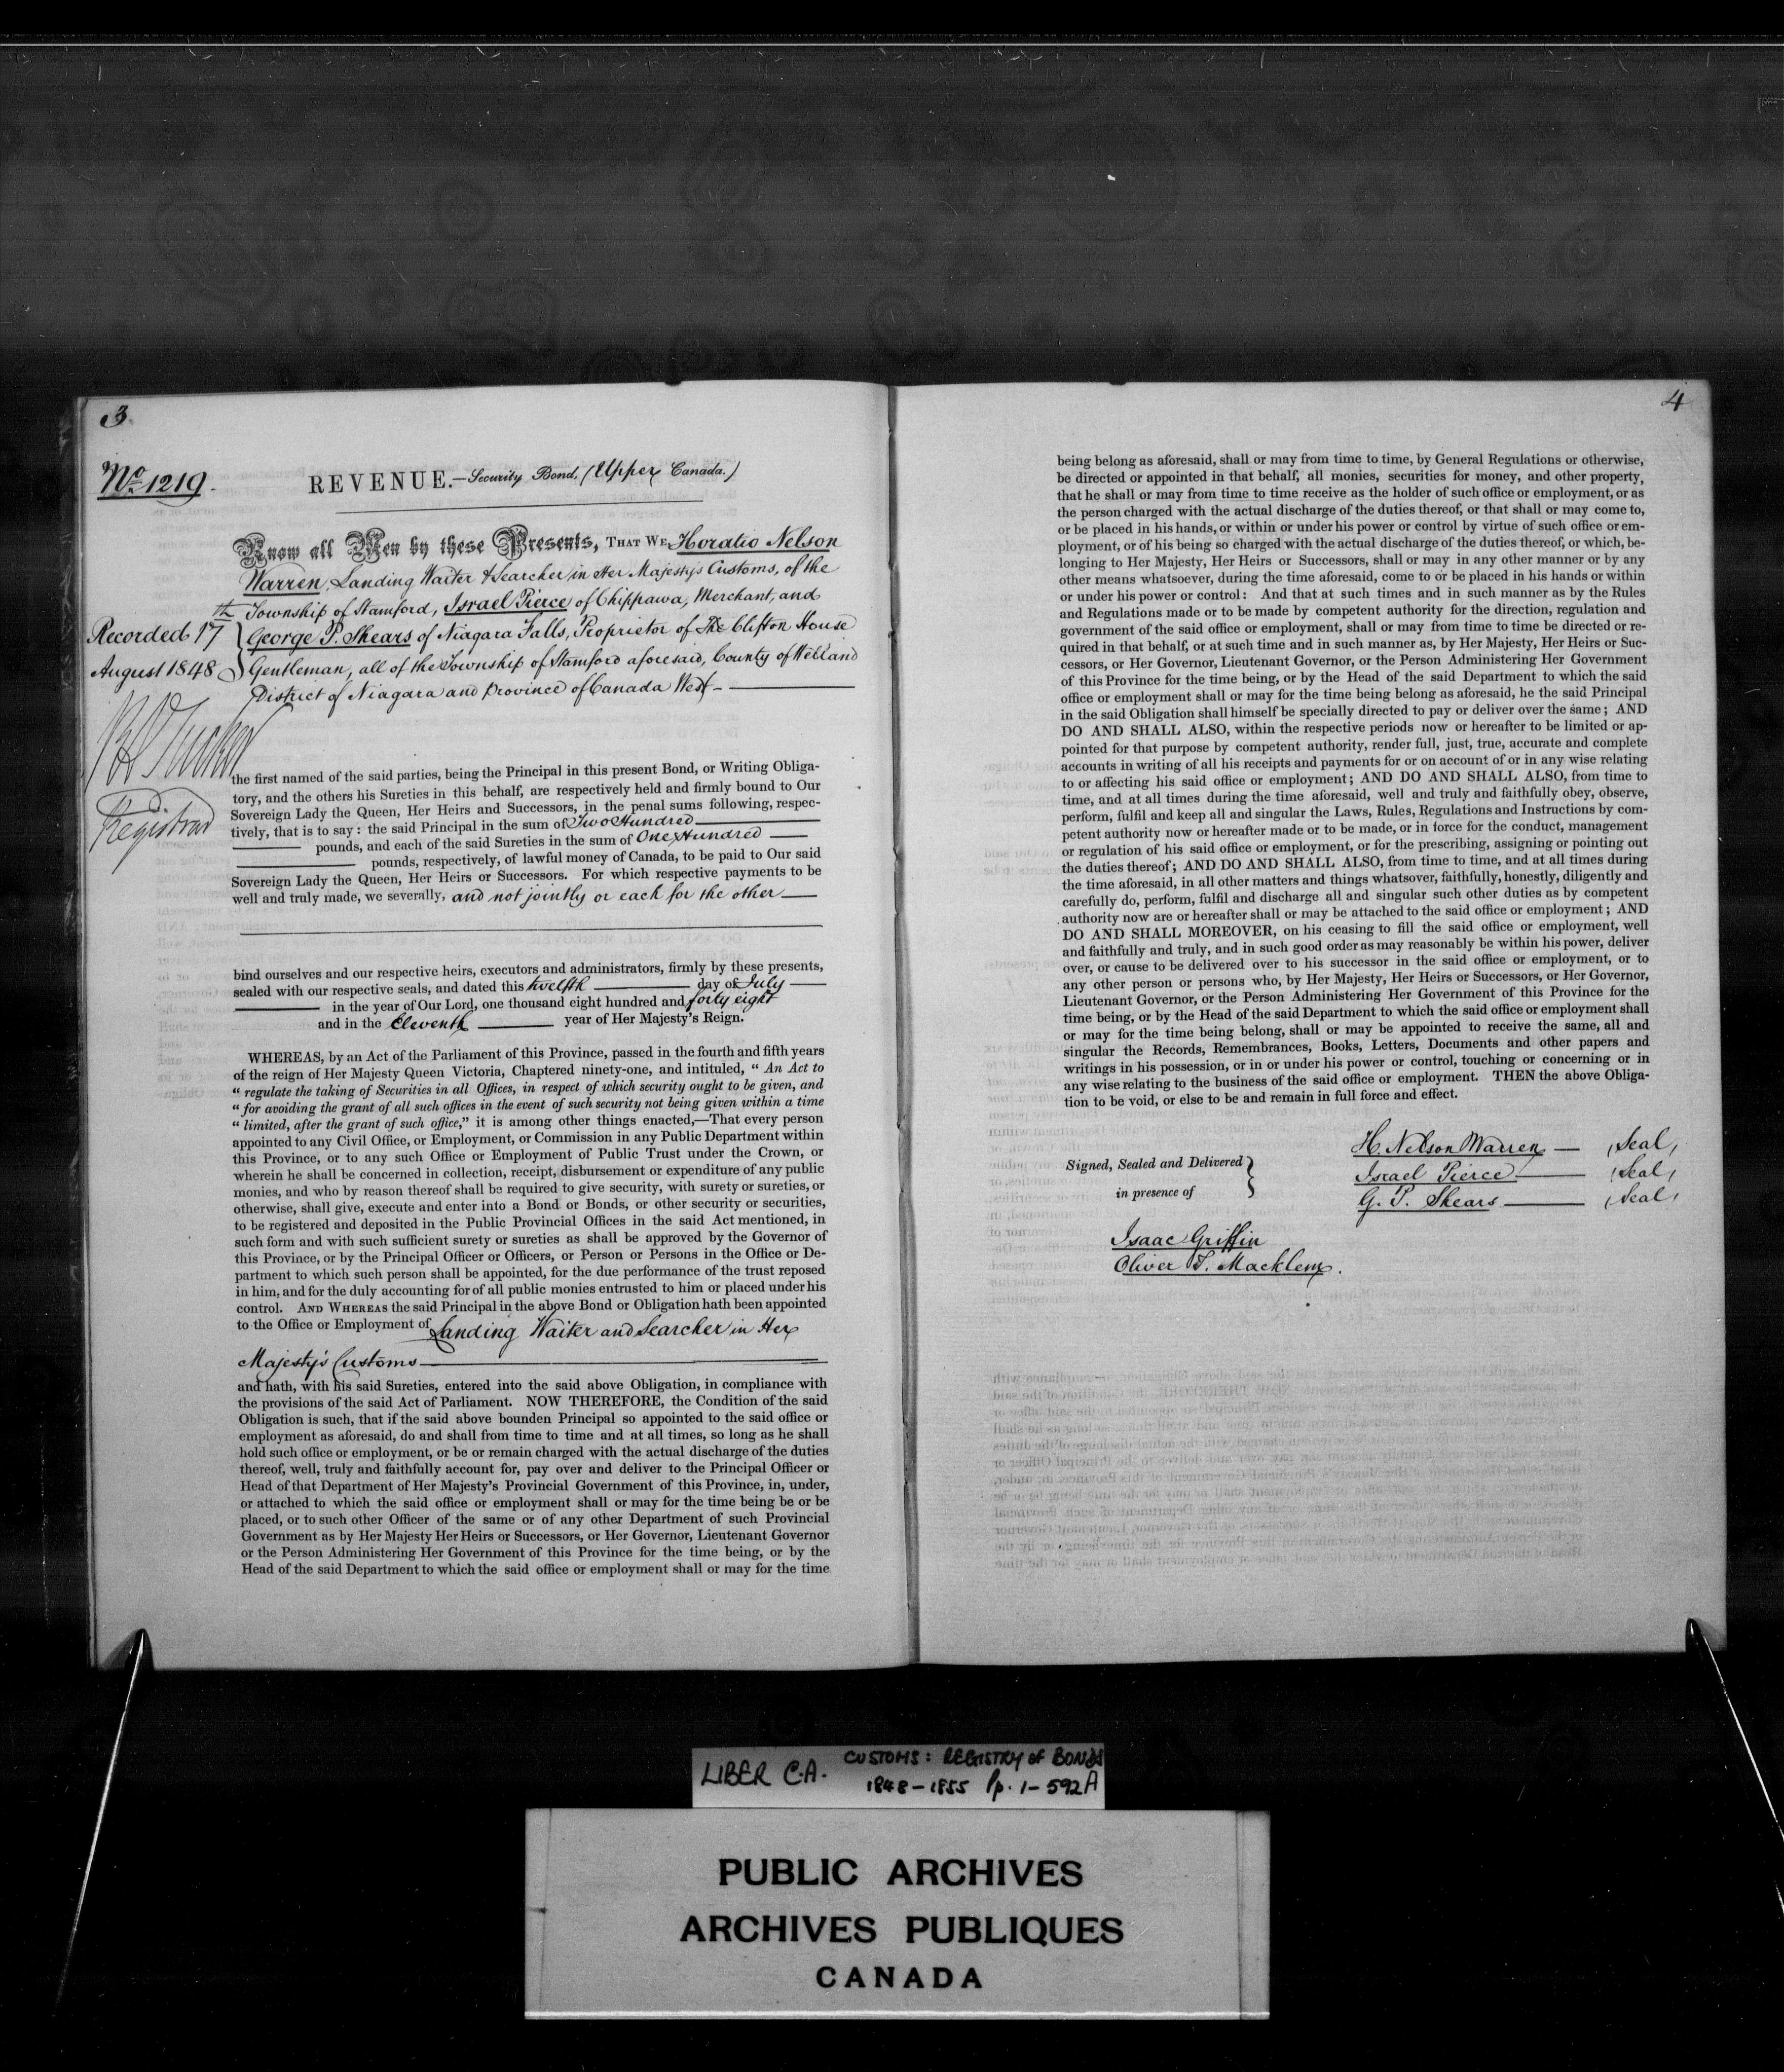 3
No 1219.
REVENUE.—Security Bond, (Upper Canada.)
Know all Men by these Presents, THAT WE, Horatio Nelson
Warren, Landing Waiter & Searcher in Her Majesty's Customs, of the
Township of Stamford, Israel Pierce of Chippawa, Merchant, and
George P. Shears of Niagara Falls, Proprietor of The Clifton House
Gentleman, all of the Township of Stamford aforesaid, County of Welland
District of Niagara and Province of Canada West —
Recorded 17th
August 1848
Tucker
Registrar
the first named of the said parties, being the Principal in this present Bond, or Writing Obliga-
tory, and the others his Sureties in this behalf, are respectively held and firmly bound to Our
Sovereign Lady the Queen, Her Heirs and Successors, in the penal sums following, respec-
tively, that is to say: the said Principal in the sum of Two Hundred
pounds, and each of the said Sureties in the sum of One Hundred
pounds, respectively, of lawful money of Canada, to be paid to Our said
Sovereign Lady the Queen, Her Heirs or Successors. For which respective payments to be
well and truly made, we severally, and not jointly or each for the other
bind ourselves and our respective heirs, executors and administrators, firmly by these presents,
sealed with our respective seals, and dated this twelfth day of July
in the year of Our Lord, one thousand eight hundred and forty eight
and in the Eleventh year of Her Majesty's Reign.
WHEREAS, by an Act of the Parliament of this Province, passed in the fourth and fifth years
of the reign of Her Majesty Queen Victoria, Chaptered ninety-one, and intituled, " An Act to
" regulate the taking of Securities in all Offices, in respect of which security ought to be given, and
" for avoiding the grant of all such offices in the event of such security not being given within a time
" limited, after the grant of such office," it is among other things enacted,—That every person
appointed to any Civil Office, or Employment, or Commission in any Public Department within
this Province, or to any such Office or Employment of Public Trust under the Crown, or
wherein he shall be concerned in collection, receipt, disbursement or expenditure of any public
monies, and who by reason thereof shall be required to give security, with surety or sureties, or
otherwise, shall give, execute and enter into a Bond or Bonds, or other security or securities,
to be registered and deposited in the Public Provincial Offices in the said Act mentioned, in
such form and with such sufficient surety or sureties as shall be approved by the Governor of
this Province, or by the Principal Officer or Officers, or Person or Persons in the Office or De-
partment to which such person shall be appointed, for the due performance of the trust reposed
in him, and for the duly accounting for of all public monies entrusted to him or placed under his
control. AND WHEREAS the said Principal in the above Bond or Obligation hath been appointed
to the Office or Employment of Landing Waiter and Searcher in Her
Majesty's Customs
and hath, with his said Sureties, entered into the said above Obligation, in compliance with
the provisions of the said Act of Parliament. NOW THEREFORE, the Condition of the said
Obligation is such, that if the said above bounden Principal so appointed to the said office or
employment as aforesaid, do and shall from time to time and at all times, so long as he shall
hold such office or employment, or be or remain charged with the actual discharge of the duties
thereof, well, truly and faithfully account for, pay over and deliver to the Principal Officer or
Head of that Department of Her Majesty's Provincial Government of this Province, in, under,
or attached to which the said office or employment shall or may for the time being be or be
placed, or to such other Officer of the same or of any other Department of such Provincial
Government as by Her Majesty Her Heirs or Successors, or Her Governor, Lieutenant Governor
or the Person Administering Her Government of this Province for the time being, or by the
Head of the said Department to which the said office or employment shall or may for the time
4
being belong as aforesaid, shall or may from time to time, by General Regulations or otherwise,
be directed or appointed in that behalf, all monies, securities for money, and other property,
that he shall or may from time to time receive as the holder of such office or employment, or as
the person charged with the actual discharge of the duties thereof, or that shall or may come to,
or be placed in his hands, or within or under his power or control by virtue of such office or em-
ployment, or of his being so charged with the actual discharge of the duties thereof, or which, be-
longing to Her Majesty, Her Heirs or Successors, shall or may in any other manner or by any
other means whatsoever, during the time aforesaid, come to or be placed in his hands or within
or under his power or control: And that at such times and in such manner as by the Rules
and Regulations made or to be made by competent authority for the direction, regulation and
government of the said office or employment, shall or may from time to time be directed or re-
quired in that behalf, or at such time and in such manner as, by Her Majesty, Her Heirs or Suc-
cessors, or Her Governor, Lieutenant Governor, or the Person Administering Her Government
of this Province for the time being, or by the Head of the said Department to which the said
office or employment shall or may for the time being belong as aforesaid, he the said Principal
in the said Obligation shall himself be specially directed to pay or deliver over the same; AND
DO AND SHALL ALSO, within the respective periods now or hereafter to be limited or ap-
pointed for that purpose by competent authority, render full, just, true, accurate and complete
accounts in writing of all his receipts and payments for or on account of or in any wise relating
to or affecting his said office or employment; AND DO AND SHALL ALSO, from time to
time, and at all times during the time aforesaid, well and truly and faithfully obey, observe,
perform, fulfil and keep all and singular the Laws, Rules, Regulations and Instructions by com-
petent authority now or hereafter made or to be made, or in force for the conduct, management
or regulation of his said office or employment, or for the prescribing, assigning or pointing out
the duties thereof; AND DO AND SHALL ALSO, from time to time, and at all times during
the time aforesaid, in all other matters and things whatsover, faithfully, honestly, diligently and
carefully do, perform, fulfil and discharge all and singular such other duties as by competent
authority now are or hereafter shall or may be attached to the said office or employment; AND
DO AND SHALL MOREOVER, on his ceasing to fill the said office or employment, well
and faithfully and truly, and in such good order as may reasonably be within his power, deliver
over, or cause to be delivered over to his successor in the said office or employment, or to
any other person or persons who, by Her Majesty, Her Heirs or Successors, or Her Governor,
Lieutenant Governor, or the Person Administering Her Government of this Province for the
time being, or by the Head of the said Department to which the said office or employment shall
or may for the time being belong, shall or may be appointed to receive the same, all and
singular the Records, Remembrances, Books, Letters, Documents and other papers and
writings in his possession, or in or under his power or control, touching or concerning or in
any wise relating to the business of the said office or employment. THEN the above Obliga-
tion to be void, or else to be and remain in full force and effect.
Signed, Sealed and Delivered
in presence of
H. Nelson Warren — (Seal)
Israel Pierce — (Seal)
G. P. Shears — (Seal)
Isaac Griffin
Oliver T. Macklem.
LIBER C.A. CUSTOMS: REGISTRY OF BONDS
1848-1855 Pp. 1-592A
PUBLIC ARCHIVES
ARCHIVES PUBLIQUES
CANADA